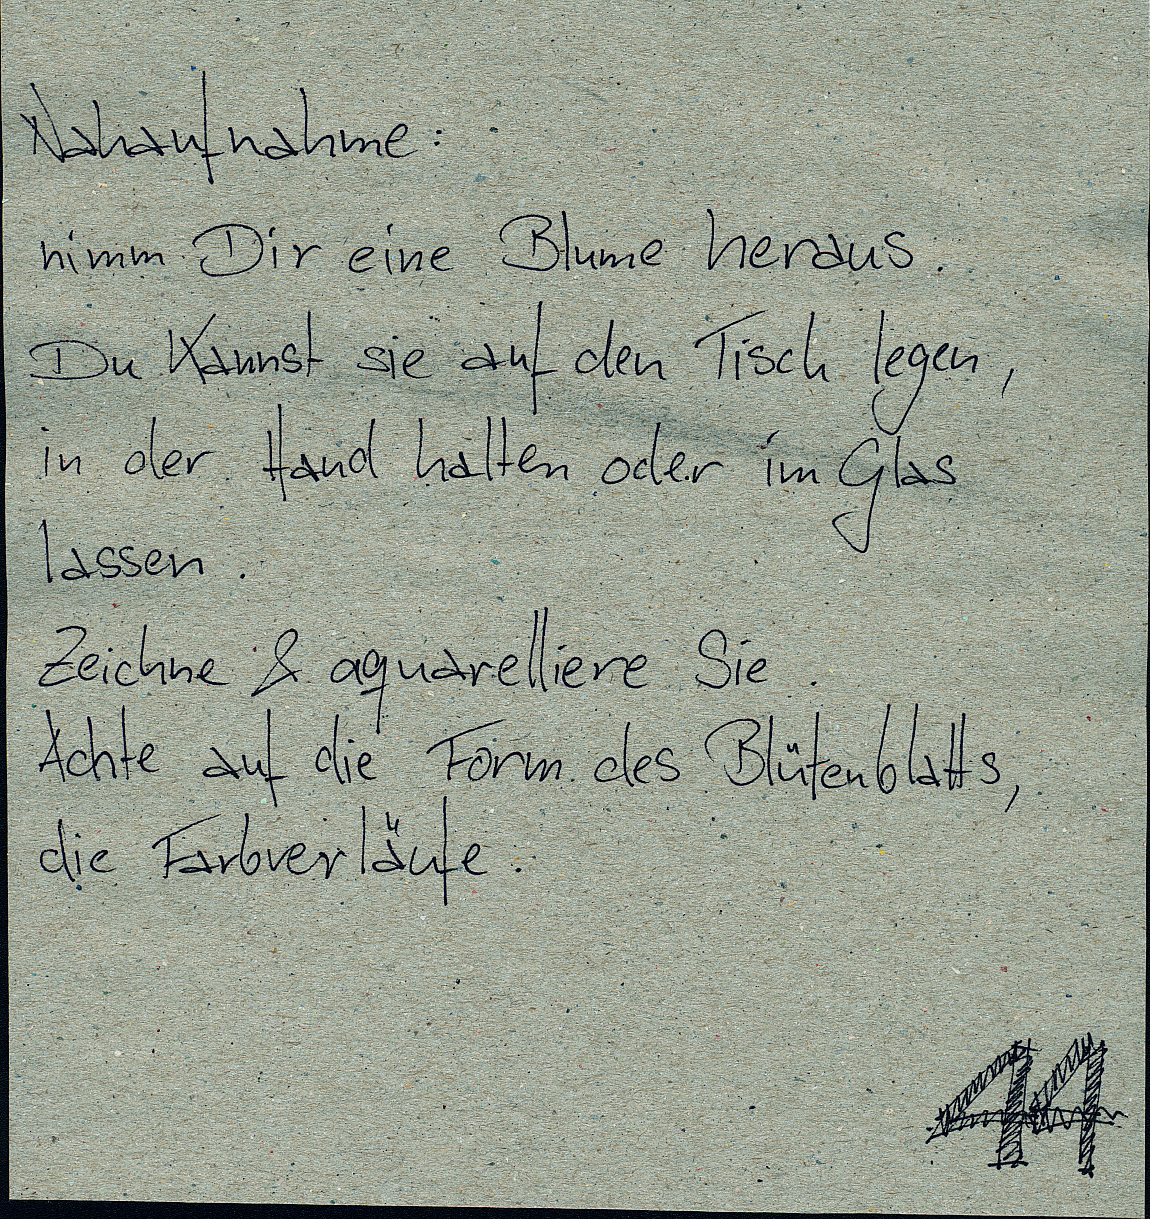 Nahaufnahme:
nimm Dir eine Blume heraus.
Du kannst sie auf den Tisch legen,
in der Hand halten oder im Glas
lassen.
Zeichne & aquarelliere Sie.
Achte auf die Form des Blütenblatts,
die Farbverläufe.
44